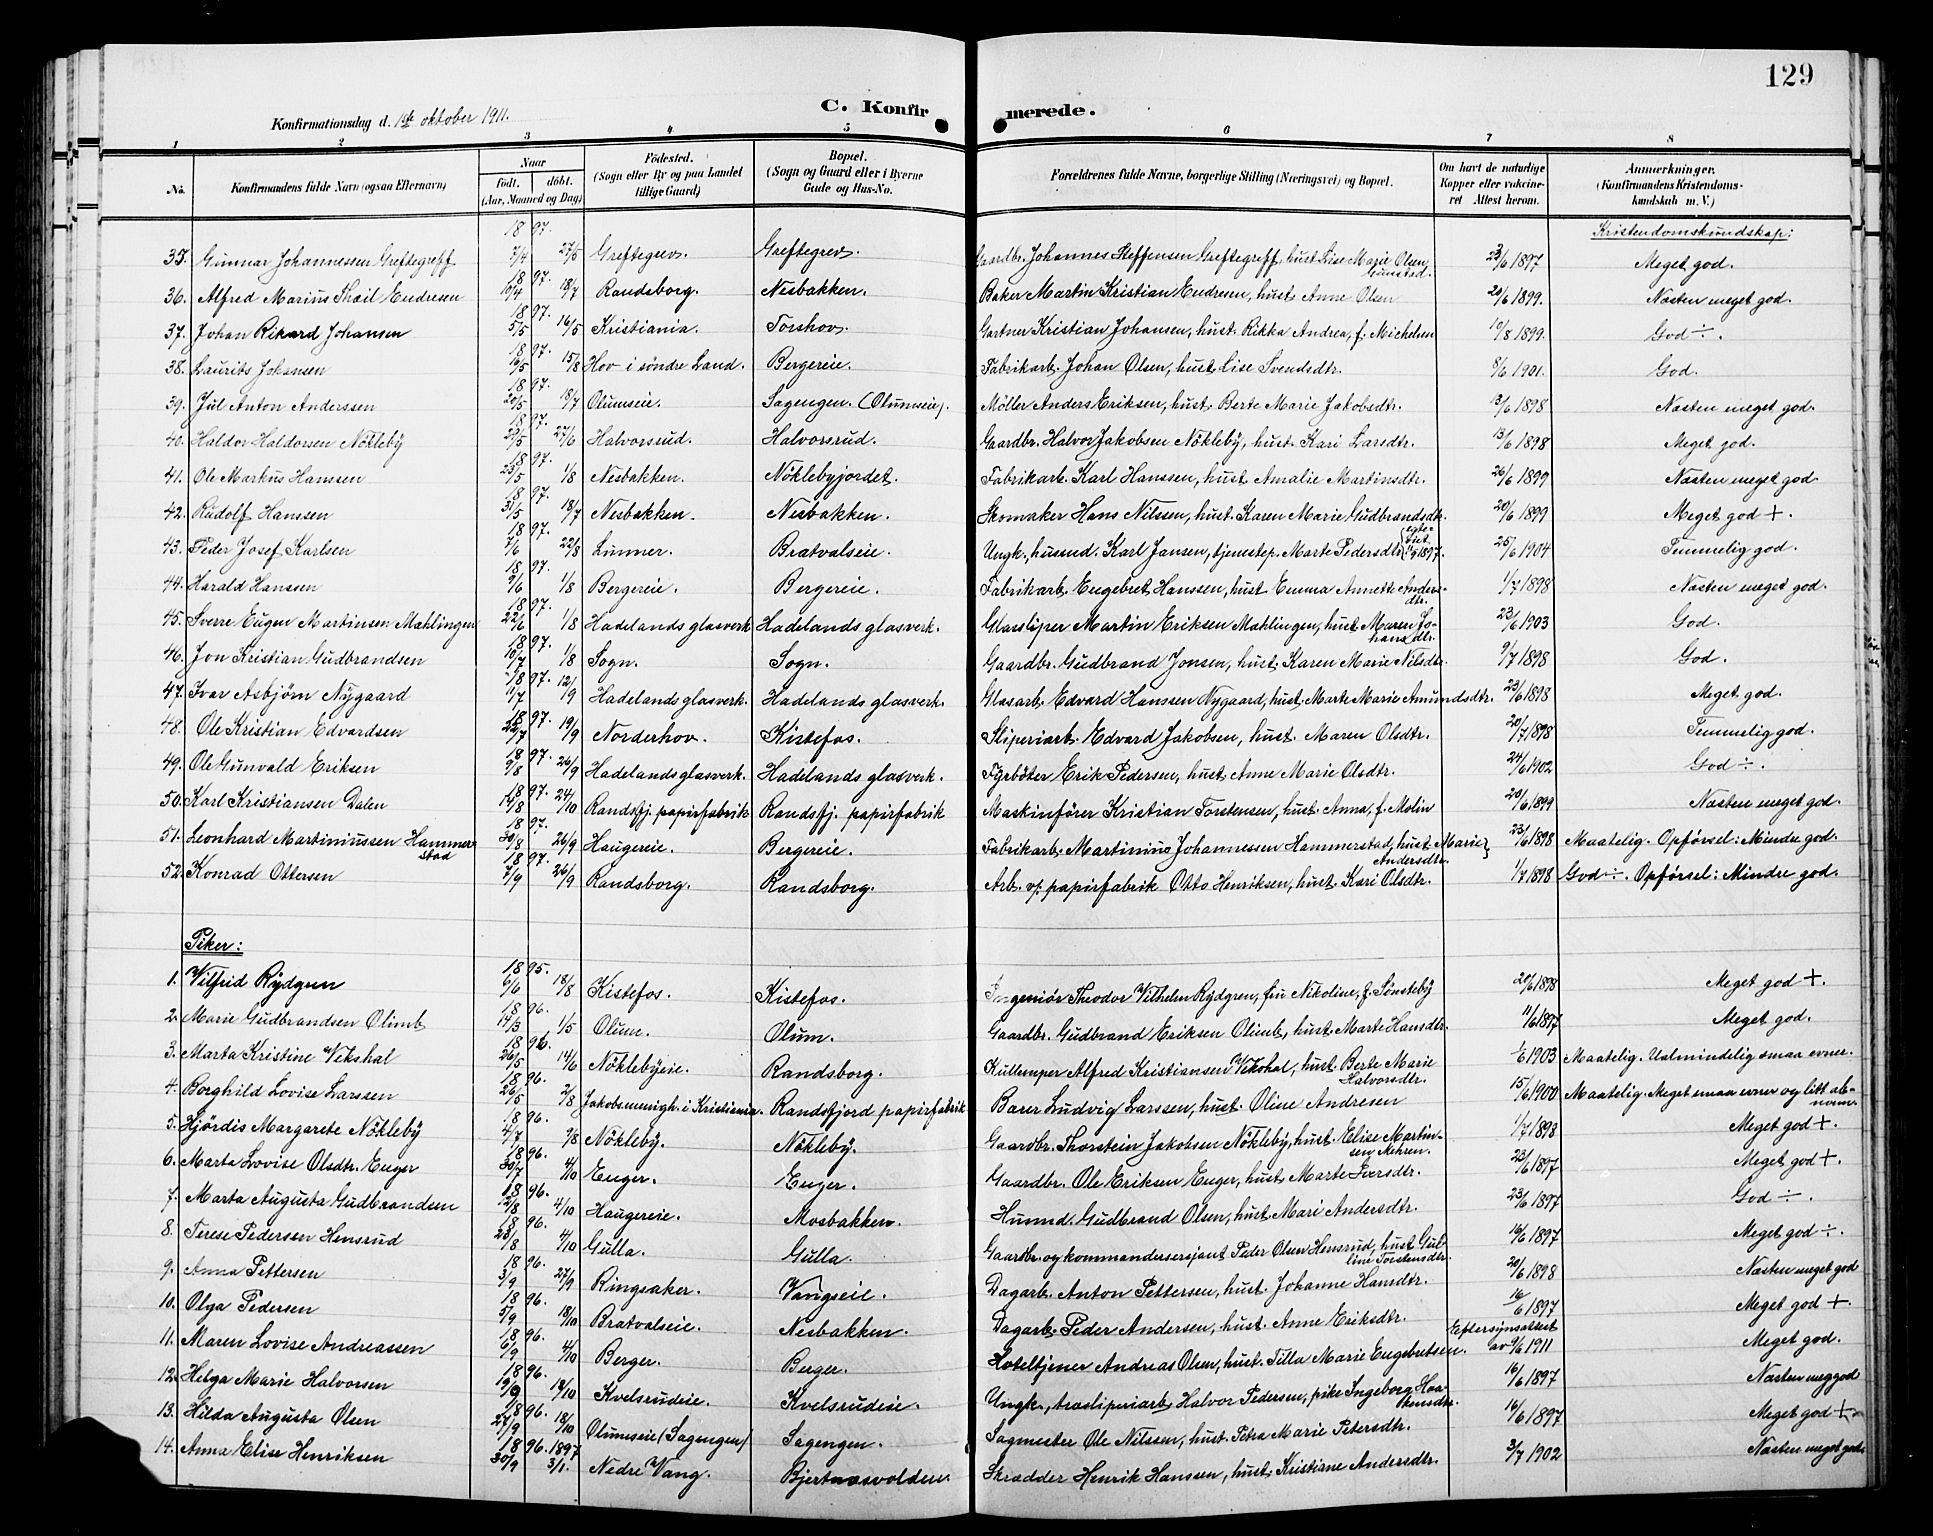 129
C. Konfir merede.
Konfirmationsdag d. 1ste oktober 1911.
1 2 3 4 5 6 7 8
No. Konfirmandens fulde Navn (ogsaa Efternavn) Naar født, døbt. (Aar, Maaned og Dag) Fødested. (Sogn eller By og paa Landet tillige Gaard) Bopæl. (Sogn og Gaard eller i Byerne Gade og Hus-No. Forældrenes fulde Navne, borgerlige Stilling (Næringsvei) og Bopæl. Om havt de naturlige Kopper eller vakcineret Attest herom. Anmærkninger. (Konfirmandens Kristendomskundskab m. V.)
Kristendomskundskap:
35. Gunnar Johannessen Greftegreff 1897. 7/4 27/5 Greftegrev. Greftegrev. Gaardbr. Johannes Steffensen Greftegreff, hust. Lise Marie Olsen Gunstad. 23/6 1897 Meget god.
36. Alfred Marius Endresen 1897. 10/4 18/7 Randsborg. Nesbakken. Baker Martin Kristian Endresen, hust. Anne Olsen 20/6 1899. Næsten meget god.
37. Johan Rikard Johansen 1897. 5/5 16/5 Kristiania. Torshov. Gartner Kristian Johansen, hust. Rikka Andrea, f. Michelsen 10/8 1899. God ÷.
38. Laurits Johansen 1897. 16/5 15/8 Hov i søndre Land. Bergereie. Fabrikarb. Johan Olsen, hust. Lise Svendsdtr. 8/6 1901. God.
39. Jul Anton Anderssen 1897. 20/5 18/7 Olumseie. Sagengen. (Olumseie). Møller Anders Eriksen, hust. Berte Marie Jakobsdtr. 13/6 1898 Næsten meget god.
40. Haldor Haldorsen Nökleby 1897. 23/5 27/6 Halvorsrud. Halvorsrud. Gaardbr. Halvor Jakobsen Nökleby, hust. Kari Larsdtr. 13/6 1898 Meget god.
41. Ole Markus Hanssen 1897. 25/5 1/8 Nesbakken. Nöklebyjordet. Fabrikarb. Karl Hanssen, hust. Amalie Martinsdtr. 26/6 1899 Næsten meget god.
42. Rudolf Hanssen 1897. 31/5 18/7 Nesbakken. Nesbakken. Skomaker Hans Nilssen, hust. Karen Marie Gudbrandsdtr. 20/6 1899 Meget god +.
43. Peder Josef Karlsen 1897. 7/6 22/8 Lunner. Bratvalseie. Ungk., husmd. Karl Jansen, tjenestep. Marte Pedersdtr. 1897. 25/6 1904 Temmelig god.
44. Harald Hanssen 1897. 9/6 1/8 Bergereie. Bergereie. Fabrikarb. Engebret Hanssen, hust. Emma Annette Andersdtr. 1/7 1898 Næsten meget god.
45. Sverre Eugen Martinsen Mahlingen 1897. 22/6 1/8 Hadelands glasverk Hadelands glasverk. Glassliper Martin Eriksen Mahlingen, hust. Maren Johansdtr. 23/6 1903 God.
46. Jon Kristian Gudbrandsen 1897. 10/7 1/8 Sogn. Sogn. Gaardbr. Gudbrand Jonsen, hust. Karen Marie Nilsdtr. 9/7 1898 God.
47. Ivar Asbjørn Nygaard 1897. 11/7 12/9 Hadelands glasverk. Hadelands glasverk. Glasarb. Edvard Hanssen Nygaard, hust. Marte Marie Amundsdtr. 23/6 1898 Meget god.
48. Ole Kristian Edvardsen 1897. 22/7 19/9 Norderhov. Kistefos. Sliperiarb. Edvard Jakobsen, hust. Maren Olsdtr. 20/7 1898 Temmelig god.
49. Ole Gunvald Eriksen 1897. 9/8 26/9 Hadelandsglasverk. Hadelands glasverk. Fyrböter Erik Pedersen, hust. Anne Marie Olsdtr. 24/6 1902 God ÷.
50. Karl Kristiansen Dalen 1897. 14/8 24/10 Randsfj. papirfabrik Randsfj. papirfabrik Maskinförer Kristian Torstensen, hust. Anna, f. Molin 20/6 1899 Næsten meget god.
51. Leonhard Martiniussen Hammerstad 1897. 30/8 26/9 Haugereie. Bergereie. Fabrikarb. Martinius Johannessen Hammerstad, hust. Marie Andersdtr. 23/6 1898 Maatelig. Opførsel: Mindre god.
52. Konrad Ottersen 1897. 7/9 26/9 Randsborg. Randsborg. Arb. v. papirfabrik Otto Henriksen, hust. Kari Olsdtr. 1/7 1898 God ÷. Opførsel: Mindre god.
Piker:
1. Vilfrid Rydgren 1895. 6/6 18/8 Kistefos. Kistefos. Ingeniör Theodor Vilhelm Rydgren, fru Nikoline, f. Sønsteby 20/6 1898 Meget god +
2. Marie Gudbrandsen Olimb 1896. 14/3 1/5 Olum. Olum. Gaardbr. Gudbrand Eriksen Olimb, hust. Marte Hansdtr. 11/6 1897 Meget god.
3. Marta Kristine Vekshal 1896. 26/5 14/6 Nöklebyeie. Randsborg. Kullemper Alfred Kristiansen Vekshal, hust. Berte Marie Halvorsdtr. 1/6 1903 Maatelig. Ualmindelig smaa evner.
4. Borghild Lovise Larssen 1896. 26/5 2/8 Jakobsmenigh. i Kristiania. Randsfjord papirfabrik Barer Ludvig Larssen, hust. Oline Andresen 15/6 1900 Maatelig. Meget smaa evner og litt
5. Hjördis Margarete Nökleby 1896. 4/7 9/8 Nökleby. Nökleby. Gaardbr. Thorstein Jakobsen Nökleby, hust. Elise Martinsen Aehren. 1/7 1898 Meget god +.
6. Marta Lovise Olsdtr. Enger 1896. 30/7 4/10 Enger. Enger. Gaardbr. Ole Eriksen Enger, hust. Marte Iversdtr. 23/6 1897 Meget god +.
7. Marta Augusta Gudbrandsen 1896. 12/8 4/10 Haugereie. Mosbakken. Husmd. Gudbrand Olsen, hust. Mari Andersdtr. 23/6 1897 God ÷.
8. Terese Pedersen Hensrud 1896. 23/8 4/10 Gulla. Gulla. Gaardbr. og kommandersersjant Peder Olsen Hensrud, hust. Gulline Torstensdtr. 16/6 1897 Meget god ÷.
9. Anna Pettersen 1896. 3/9 27/9 Ringsaker. Vangseie. Dagarb. Anton Pettersen, hust. Johanne Hansdtr. 20/6 1898 Næsten meget god
10. Olga Pedersen 1896. 5/9 18/10 Bratvalseie. Nesbakken. Dagarb. Peder Andersen, hust. Anne Eriksdtr. 16/6 1897 Meget god +.
11. Maren Lovise Andreassen 1896. 6/9 4/10 Berger. Berger. Hoteltjener Andreas Olsen, hust. Tilla Marie Engebretsen. Eftersynsattest av 9/6 1911 Meget god.
12. Helga Marie Halvorsen 1896. 19/9 18/10 Kvelsrudeie. Kvelsrudeie. Ungk., træsliperiarb. Halvor Pedersen, pike Ingeborg Haakensdtr. 16/6 1897 Næsten meg. god
13. Hilda Augusta Olsen 1896. 27/9 18/10 Olumseie (Sagengen) Sagengen. Sagmester Ole Nilssen, hust. Petra Marie Petersdtr. 16/6 1897 Meget god +.
14. Anna Elise Henriksen 1896. 30/9 1897 3/1. Nedre Vang. Bjertnæsvolden. Skrædder Henrik Hanssen, hust. Kristiane Andersdtr. 3/7 1902 Næsten meget god.